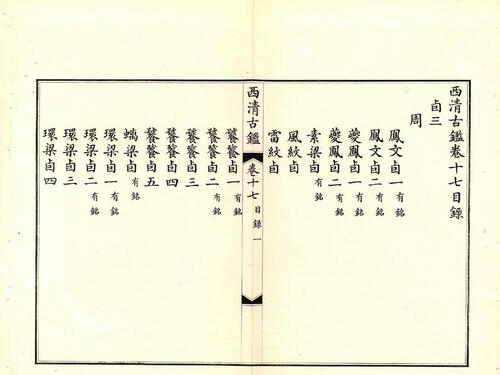 西清古鑑卷十七目錄
卣三
周
鳳文卣一有銘
鳳文卣二
夔鳳卣一有銘
夔鳳卣二有銘
素梁卣有銘
風紋卣
雷紋卣
西清古鑑 卷十七目錄 一
饕餮卣一有銘
饕餮卣二有銘
饕餮卣三
饕餮卣四
饕餮卣五
蟠梁卣有銘
環梁卣一有銘
環梁卣二有銘
環梁卣三
環梁卣四